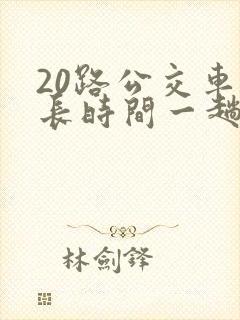 20路公交車
長時間一趟
林劍鋒